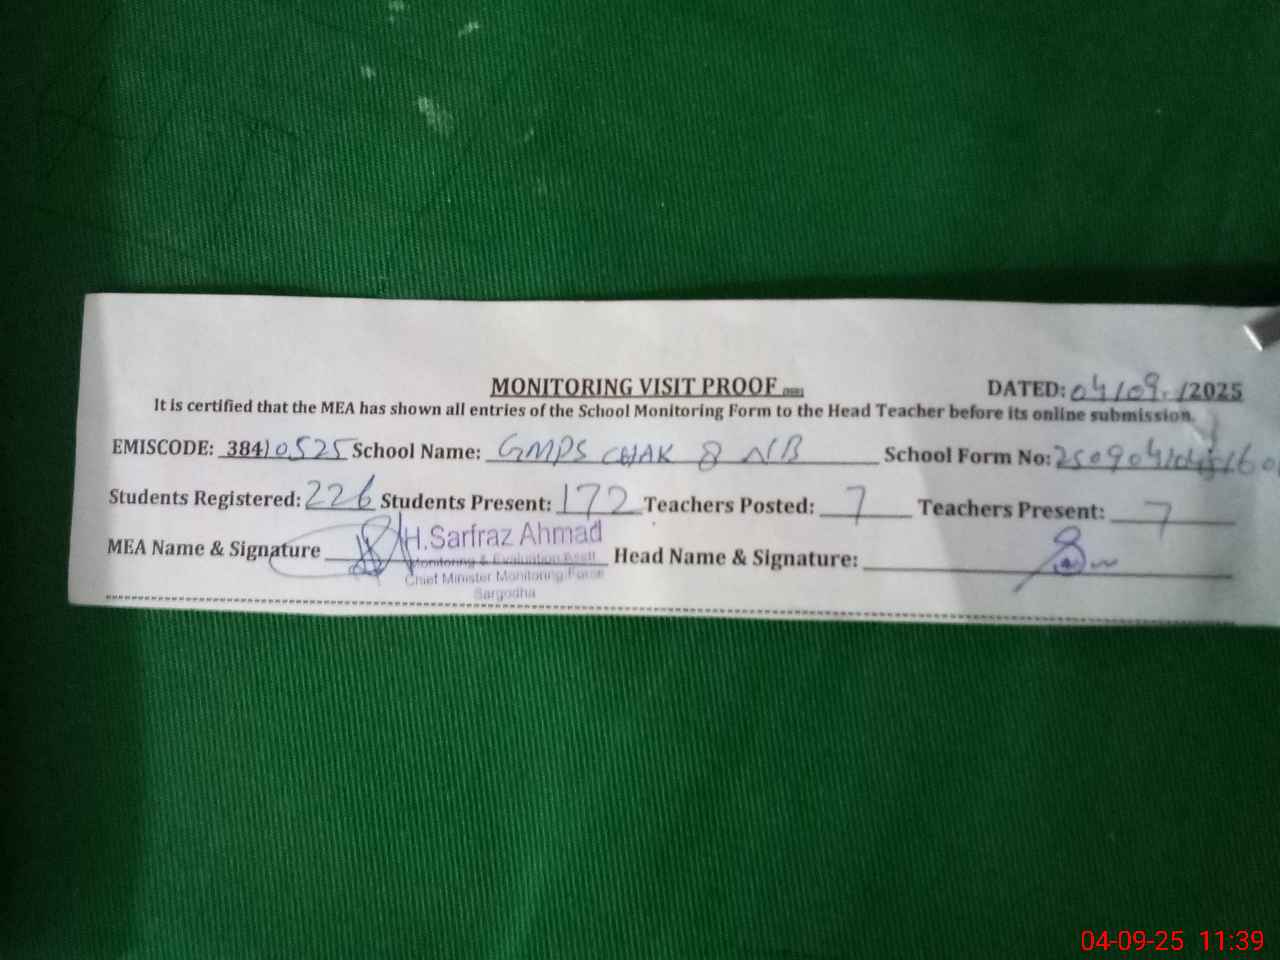 MONITORING VISIT PROOF
DATED: 04/09/2025
It is certified that the MEA has shown all entries of the School Monitoring Form to the Head Teacher before its online submission.
EMISCODE: 38410525 School Name: GMPS CHAK 8 NB School Form No:
Students Registered: 226 Students Present: 172 Teachers Posted: 7 Teachers Present: 7
MEA Name & Signature H.Sarfraz Ahmad Head Name & Signature:
Monitoring & Evaluation Asstt
Chief Minister Monitoring Force
Sargodha
04-09-25 11:39